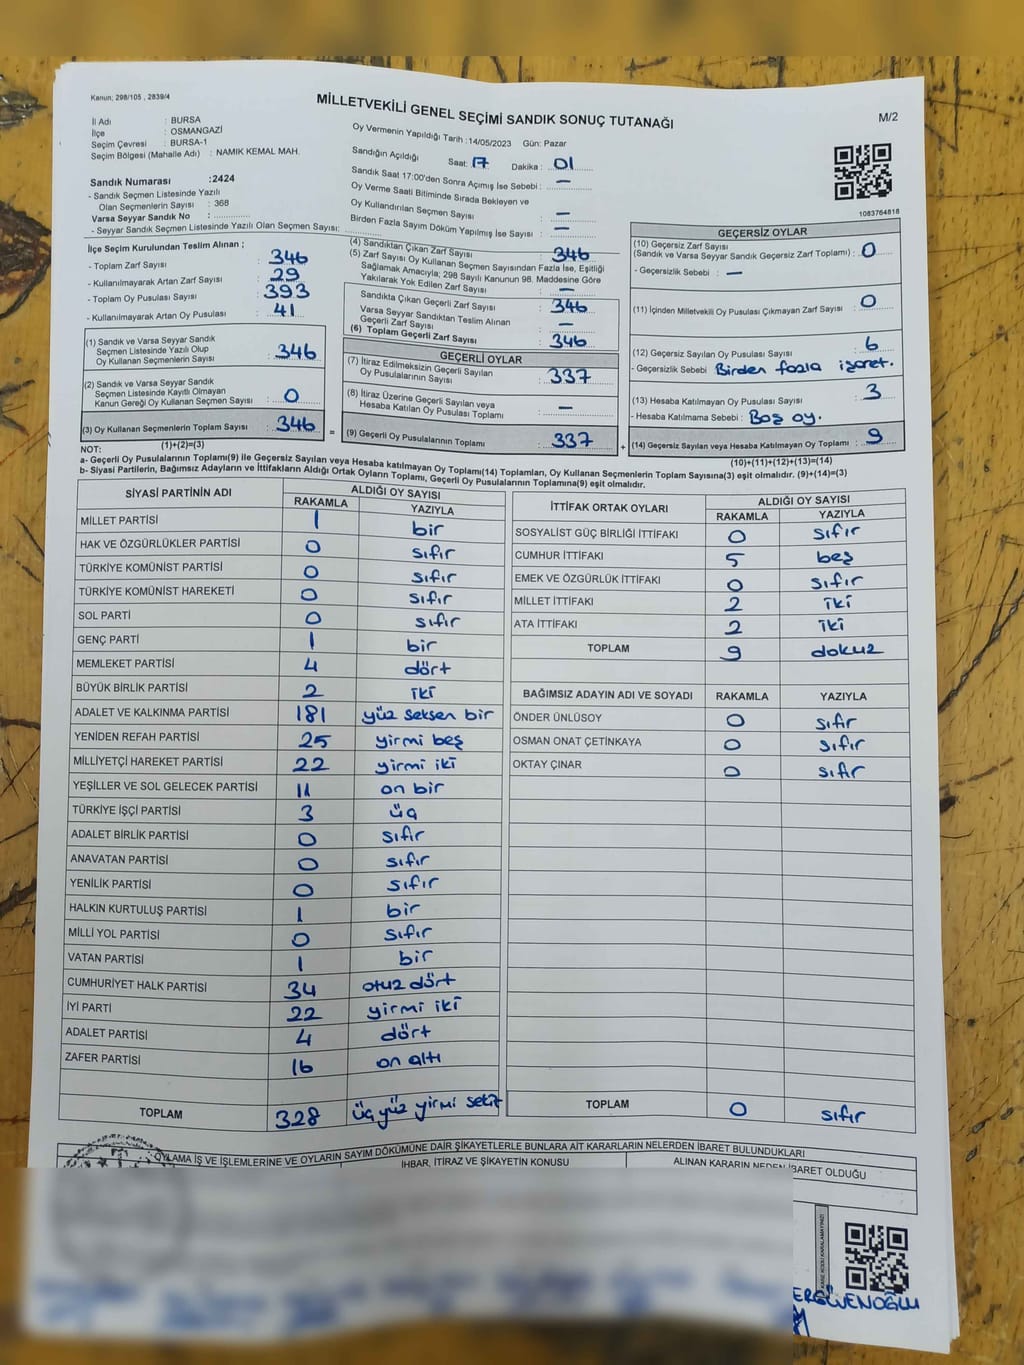 Kanun; 298/105 , 2839/4
MİLLETVEKİLİ GENEL SEÇİMİ SANDIK SONUÇ TUTANAĞI
M/2
İl Adı : BURSA
İlçe : OSMANGAZİ
Seçim Çevresi : BURSA-1
Seçim Bölgesi (Mahalle Adı) : NAMIK KEMAL MAH.
Sandık Numarası :2424
- Sandık Seçmen Listesinde Yazılı
Olan Seçmenlerin Sayısı : 368
Varsa Seyyar Sandık No :
- Seyyar Sandık Seçmen Listesinde Yazılı Olan Seçmen Sayısı;
Oy Vermenin Yapıldığı Tarih :14/05/2023 Gün: Pazar
Sandığın Açıldığı Saat: 17 Dakika : 01
Sandık Saat 17:00'den Sonra Açımış İse Sebebi : —
Oy Verme Saati Bitiminde Sırada Bekleyen ve
Oy Kullandırılan Seçmen Sayısı : —
Birden Fazla Sayım Döküm Yapılmış İse Sayısı : —
1083764818
İlçe Seçim Kurulundan Teslim Alınan ;
- Toplam Zarf Sayısı : 346
- Kullanılmayarak Artan Zarf Sayısı : 29
- Toplam Oy Pusulası Sayısı : 393
- Kullanılmayarak Artan Oy Pusulası : 41
(1) Sandık ve Varsa Seyyar Sandık
Seçmen Listesinde Yazılı Olup
Oy Kullanan Seçmenlerin Sayısı : 346
(2) Sandık ve Varsa Seyyar Sandık
Seçmen Listesinde Kayıtlı Olmayan
Kanun Gereği Oy Kullanan Seçmen Sayısı : 0
(3) Oy Kullanan Seçmenlerin Toplam Sayısı : 346
(1)+(2)=(3)
(4) Sandıktan Çıkan Zarf Sayısı : 346
(5) Zarf Sayısı Oy Kullanan Seçmen Sayısından Fazla İse, Eşitliği
Sağlamak Amacıyla; 298 Sayılı Kanunun 98. Maddesine Göre
Yakılarak Yok Edilen Zarf Sayısı : —
Sandıkta Çıkan Geçerli Zarf Sayısı : 346
Varsa Seyyar Sandıktan Teslim Alınan
Geçerli Zarf Sayısı : —
(6) Toplam Geçerli Zarf Sayısı : 346
GEÇERLİ OYLAR
(7) İtiraz Edilmeksizin Geçerli Sayılan
Oy Pusulalarının Sayısı : 337
(8) İtiraz Üzerine Geçerli Sayılan veya
Hesaba Katılan Oy Pusulası Toplamı : —
= (9) Geçerli Oy Pusulalarının Toplamı : 337
GEÇERSİZ OYLAR
(10) Geçersiz Zarf Sayısı
(Sandık ve Varsa Seyyar Sandık Geçersiz Zarf Toplamı) : 0
- Geçersizlik Sebebi : —
(11) İçinden Milletvekili Oy Pusulası Çıkmayan Zarf Sayısı : 0
(12) Geçersiz Sayılan Oy Pusulası Sayısı : 6
- Geçersizlik Sebebi Birden fazla işaret.
(13) Hesaba Katılmayan Oy Pusulası Sayısı : 3
- Hesaba Katılmama Sebebi : Boş oy.
+ (14) Geçersiz Sayılan veya Hesaba Katılmayan Oy Toplamı : 9
(10)+(11)+(12)+(13)=(14)
NOT:
a- Geçerli Oy Pusulalarının Toplamı(9) ile Geçersiz Sayılan veya Hesaba katılmayan Oy Toplamı(14) Toplamları, Oy Kullanan Seçmenlerin Toplam Sayısına(3) eşit olmalıdır. (9)+(14)=(3)
b- Siyasi Partilerin, Bağımsız Adayların ve İttifakların Aldığı Ortak Oyların Toplamı, Geçerli Oy Pusulalarının Toplamına(9) eşit olmalıdır.
SİYASİ PARTİNİN ADI ALDIĞI OY SAYISI
RAKAMLA YAZIYLA
MİLLET PARTİSİ 1 bir
HAK VE ÖZGÜRLÜKLER PARTİSİ 0 sıfır
TÜRKİYE KOMÜNİST PARTİSİ 0 sıfır
TÜRKİYE KOMÜNİST HAREKETİ 0 sıfır
SOL PARTİ 0 sıfır
GENÇ PARTİ 1 bir
MEMLEKET PARTİSİ 4 dört
BÜYÜK BİRLİK PARTİSİ 2 iki
ADALET VE KALKINMA PARTİSİ 181 yüz seksen bir
YENİDEN REFAH PARTİSİ 25 yirmi beş
MİLLİYETÇİ HAREKET PARTİSİ 22 yirmi iki
YEŞİLLER VE SOL GELECEK PARTİSİ 11 on bir
TÜRKİYE İŞÇİ PARTİSİ 3 üç
ADALET BİRLİK PARTİSİ 0 sıfır
ANAVATAN PARTİSİ 0 sıfır
YENİLİK PARTİSİ 0 sıfır
HALKIN KURTULUŞ PARTİSİ 1 bir
MİLLİ YOL PARTİSİ 0 sıfır
VATAN PARTİSİ 1 bir
CUMHURİYET HALK PARTİSİ 34 otuz dört
İYİ PARTİ 22 yirmi iki
ADALET PARTİSİ 4 dört
ZAFER PARTİSİ 16 on altı
TOPLAM 328 üç yüz yirmi sekiz
İTTİFAK ORTAK OYLARI ALDIĞI OY SAYISI
RAKAMLA YAZIYLA
SOSYALİST GÜÇ BİRLİĞİ İTTİFAKI 0 sıfır
CUMHUR İTTİFAKI 5 beş
EMEK VE ÖZGÜRLÜK İTTİFAKI 0 sıfır
MİLLET İTTİFAKI 2 iki
ATA İTTİFAKI 2 iki
TOPLAM 9 dokuz
BAĞIMSIZ ADAYIN ADI VE SOYADI RAKAMLA YAZIYLA
ÖNDER ÜNLÜSOY 0 sıfır
OSMAN ONAT ÇETİNKAYA 0 sıfır
OKTAY ÇINAR 0 sıfır
TOPLAM 0 sıfır
OYLAMA İŞ VE İŞLEMLERİNE VE OYLARIN SAYIM DÖKÜMÜNE DAİR ŞİKAYETLERLE BUNLARA AİT KARARLARIN NELERDEN İBARET BULUNDUKLARI
İHBAR, İTİRAZ VE ŞİKAYETİN KONUSU ALINAN KARARIN NEDEN İBARET OLDUĞU
ERGÜVENOĞLU